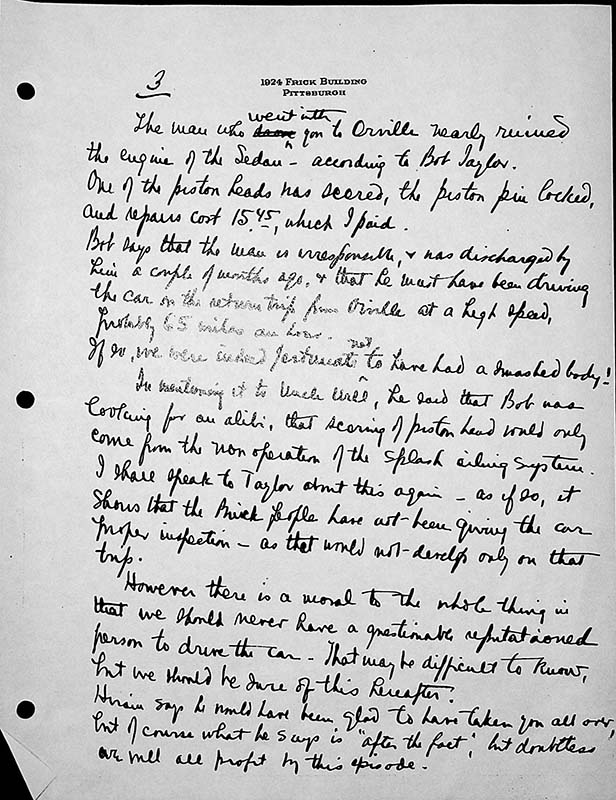 3
1924 FRICK BUILDING
PITTSBURGH
The man who went with you to Orville nearly ruined
the engine of the Sedan — according to Bob Taylor.
One of the piston heads was scored, the piston pin locked,
and repairs cost 15.45, which I paid.
Bob says that the man is irresponsible, & was discharged by
him a couple of months ago, & that he must have been driving
the car on the return trip from Orville at a high speed,
probably 65 miles an hour.
If so, we were indeed fortunate not to have had a smashed body!
In mentioning it to Uncle Will, he said that Bob was
looking for an alibi, that scoring of piston head would only
come from the non operation of the splash oiling system.
I shall speak to Taylor about this again — as if so, it
shows that the Buick people have not been giving the car
proper inspection — as that would not develop only on that
trip.
However there is a moral to the whole thing in
that we should never have a questionable reputationed
person to drive the car — That may be difficult to know,
but we should be sure of this hereafter.
Hiram says he would have been glad to have taken you all over,
but of course what he says is "after the fact", but doubtless
we will all profit by this episode.